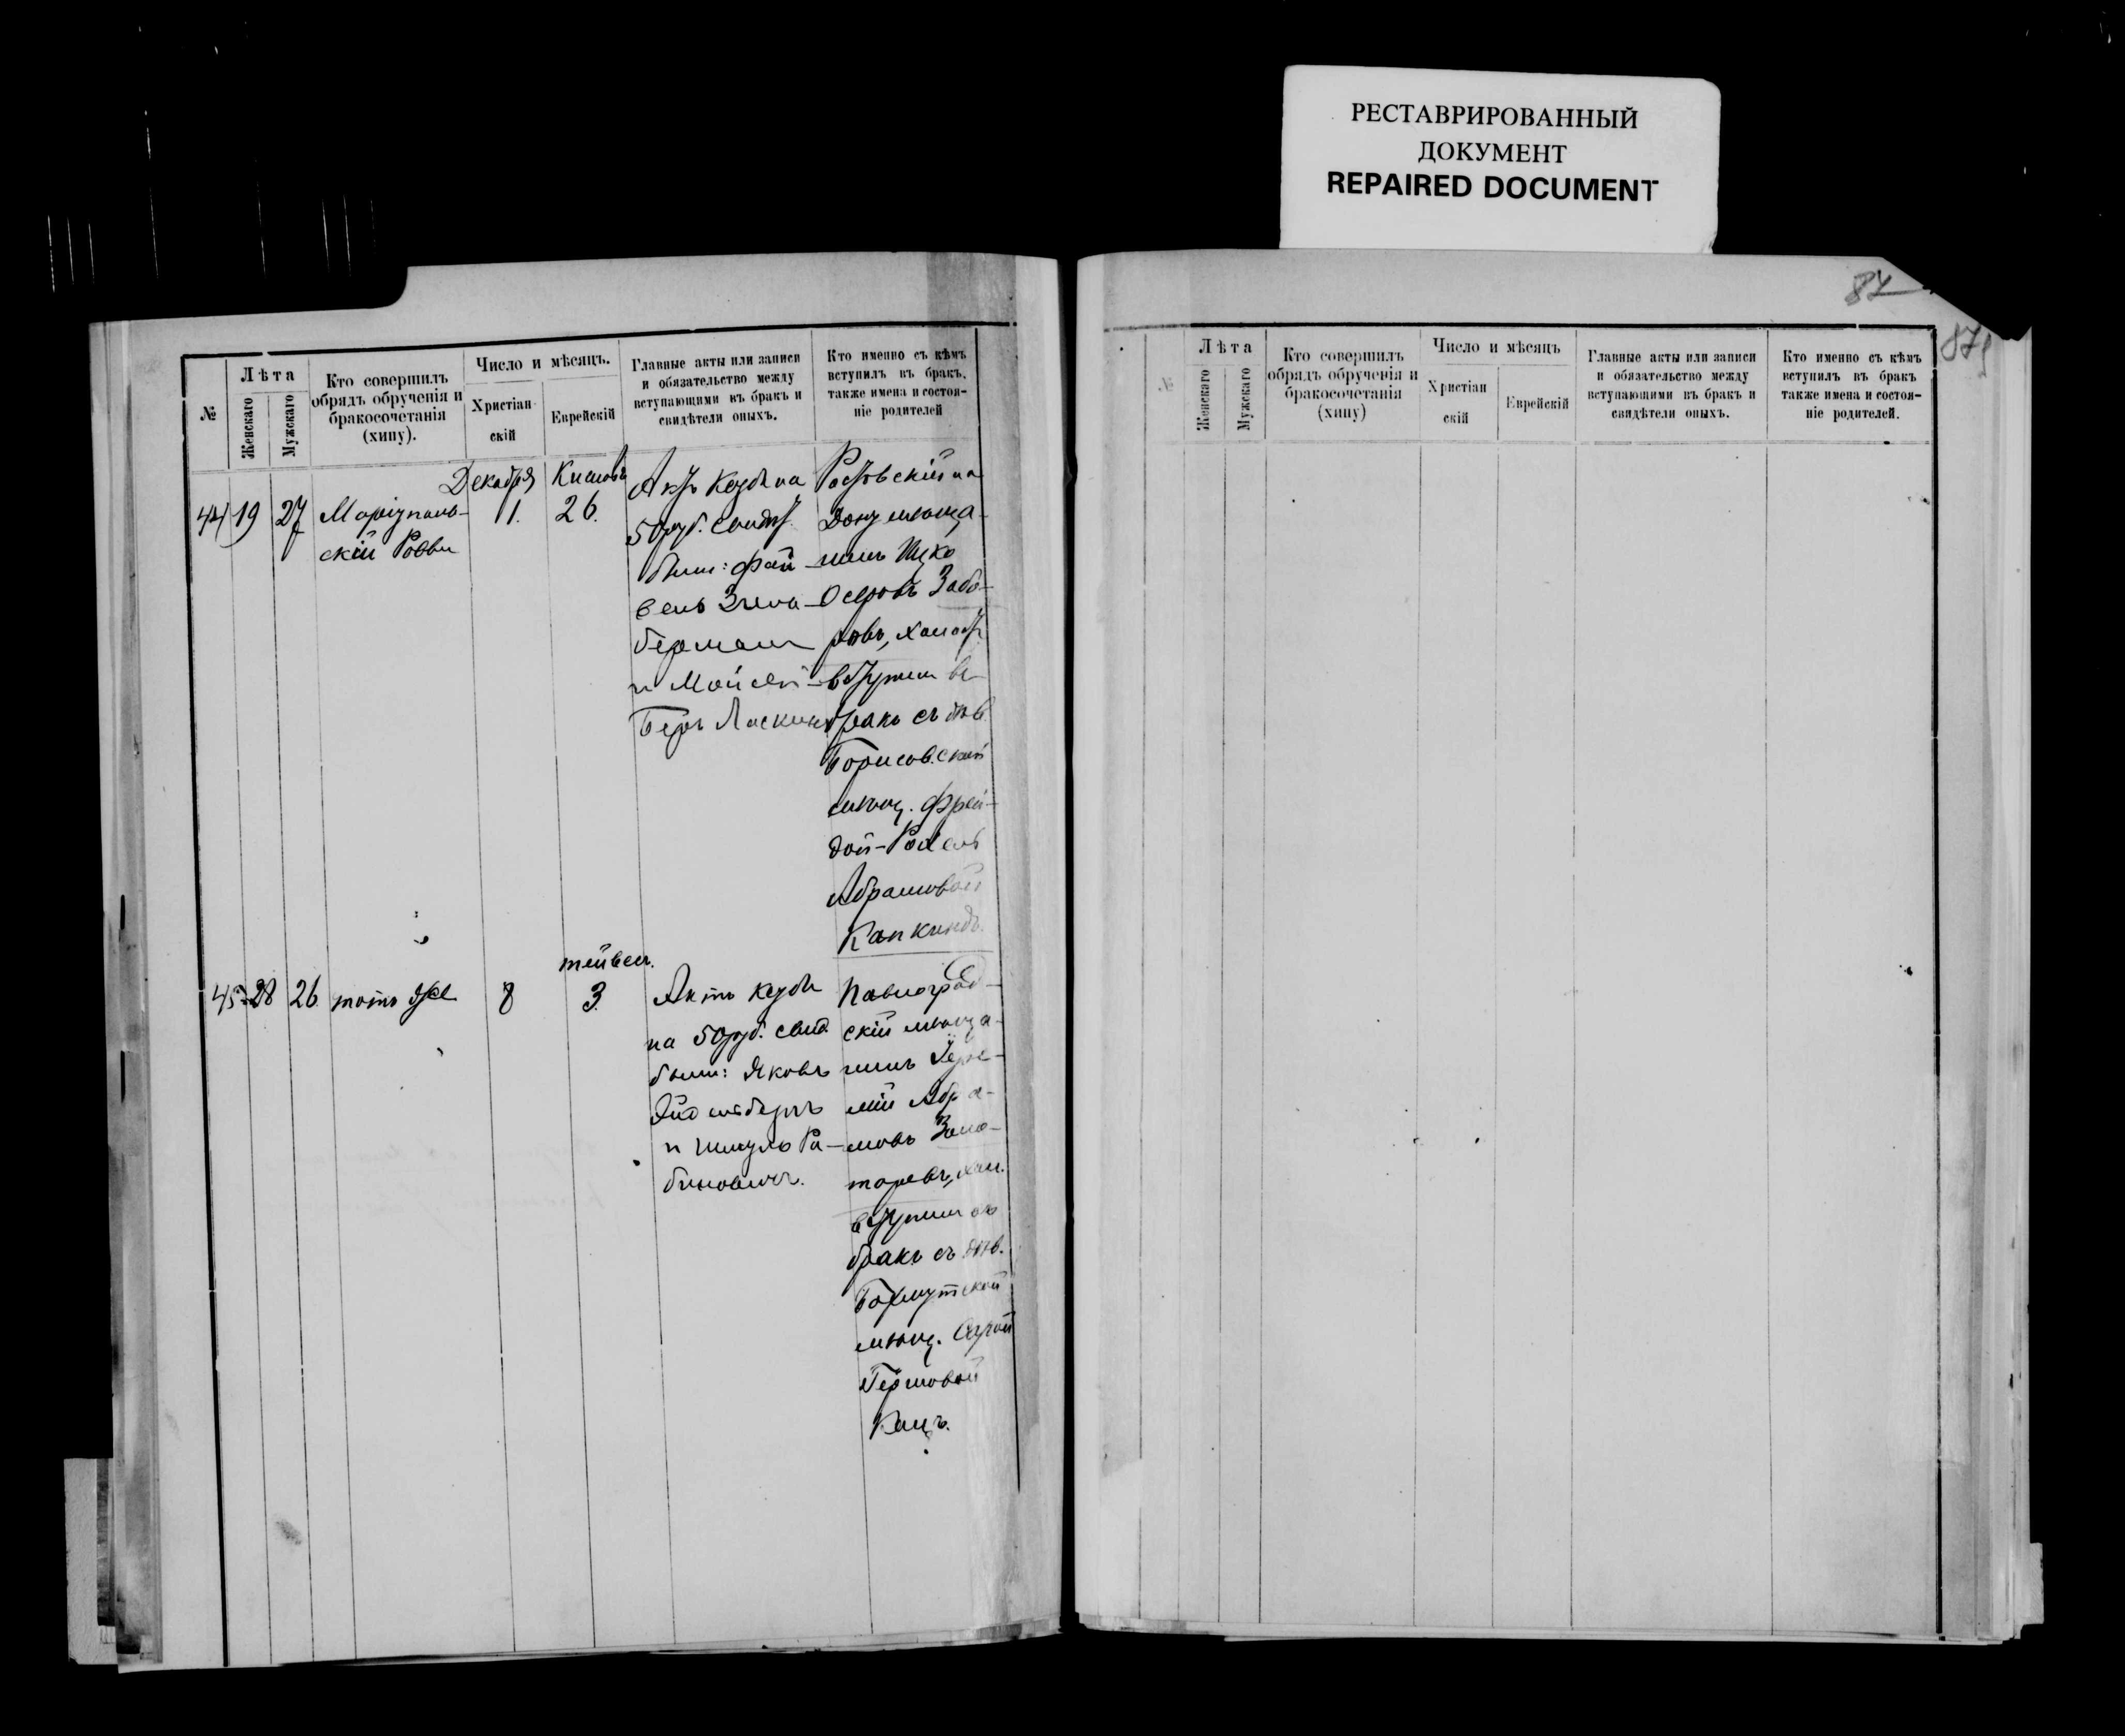 РЕСТАВРИРОВАННЫЙ
ДОКУМЕНТ
REPAIRED DOCUMENT
№
Лѣта
Женскаго
Мужскаго
Кто совершилъ
обрядъ обрученія и
бракосочетанія
(хипу).
Число и мѣсяцъ.
Христіан-
скій
Еврейскій
Главные акты или записи
и обязательство между
вступающими въ бракъ и
свидѣтели оныхъ.
Кто именно съ кѣмъ
вступилъ въ бракъ,
также имена и состоя-
ніе родителей
44
19
27
Маріуполь-
скій
Декабря
1.
26.
Актъ Кесубе на
50 руб. свидѣт.
были:
берман
и Мойсей-
Беръ Ласкинъ
Ростовскій на
Дону мѣща-
нинъ Ицко
Осеровъ Забо-
ровъ, холост.
вступил въ
бракъ съ дѣв.
Борисовской
мѣщ. Фрей-
дой-Рохель
Абрамовой
45
28
26
тотъ же
8
тейвес.
3.
Актъ Кесубе
на 50 руб. свид.
были: Яковъ
и Шмуль Ра-
биновичъ.
Павлоград-
скій мѣща-
нинъ Іере-
мій Абра-
мовъ Замо-
торевъ, хол.
вступил въ
бракъ съ дѣв.
Бахмутской
мѣщ. Сарой
Гершовой
Кацъ.
87
87
№
Лѣта
Женскаго
Мужскаго
Кто совершилъ
обрядъ обрученія и
бракосочетанія
(хипу)
Число и мѣсяцъ
Христіан
скій
Еврейскій
Главные акты или записи
и обязательство между
вступающими въ бракъ и
свидѣтели оныхъ.
Кто именно съ кѣмъ
вступилъ въ бракъ
также имена и состоя-
ніе родителей.